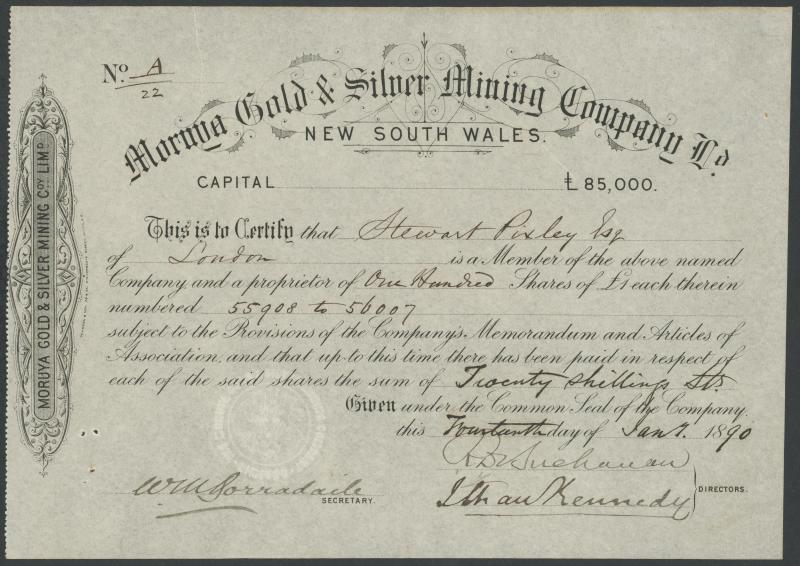 No. A
22
Moruya Gold & Silver Mining Company Ld.
NEW SOUTH WALES.
CAPITAL £85,000.
This is to Certify that Stewart Pixley Esq
of London is a Member of the above named
Company, and a proprietor of One Hundred Shares of £1 each therein
numbered 55908 to 56007
subject to the Provisions of the Company's Memorandum and Articles of
Association, and that up to this time there has been paid in respect of
each of the said shares the sum of Twenty Shillings Stg.
Given under the Common Seal of the Company.
this Fourteenth day of Jany. 1890
Buchanan
Wm Borradaile
SECRETARY.
Kennedy
DIRECTORS.
MORUYA GOLD & SILVER MINING COY. LIMD.